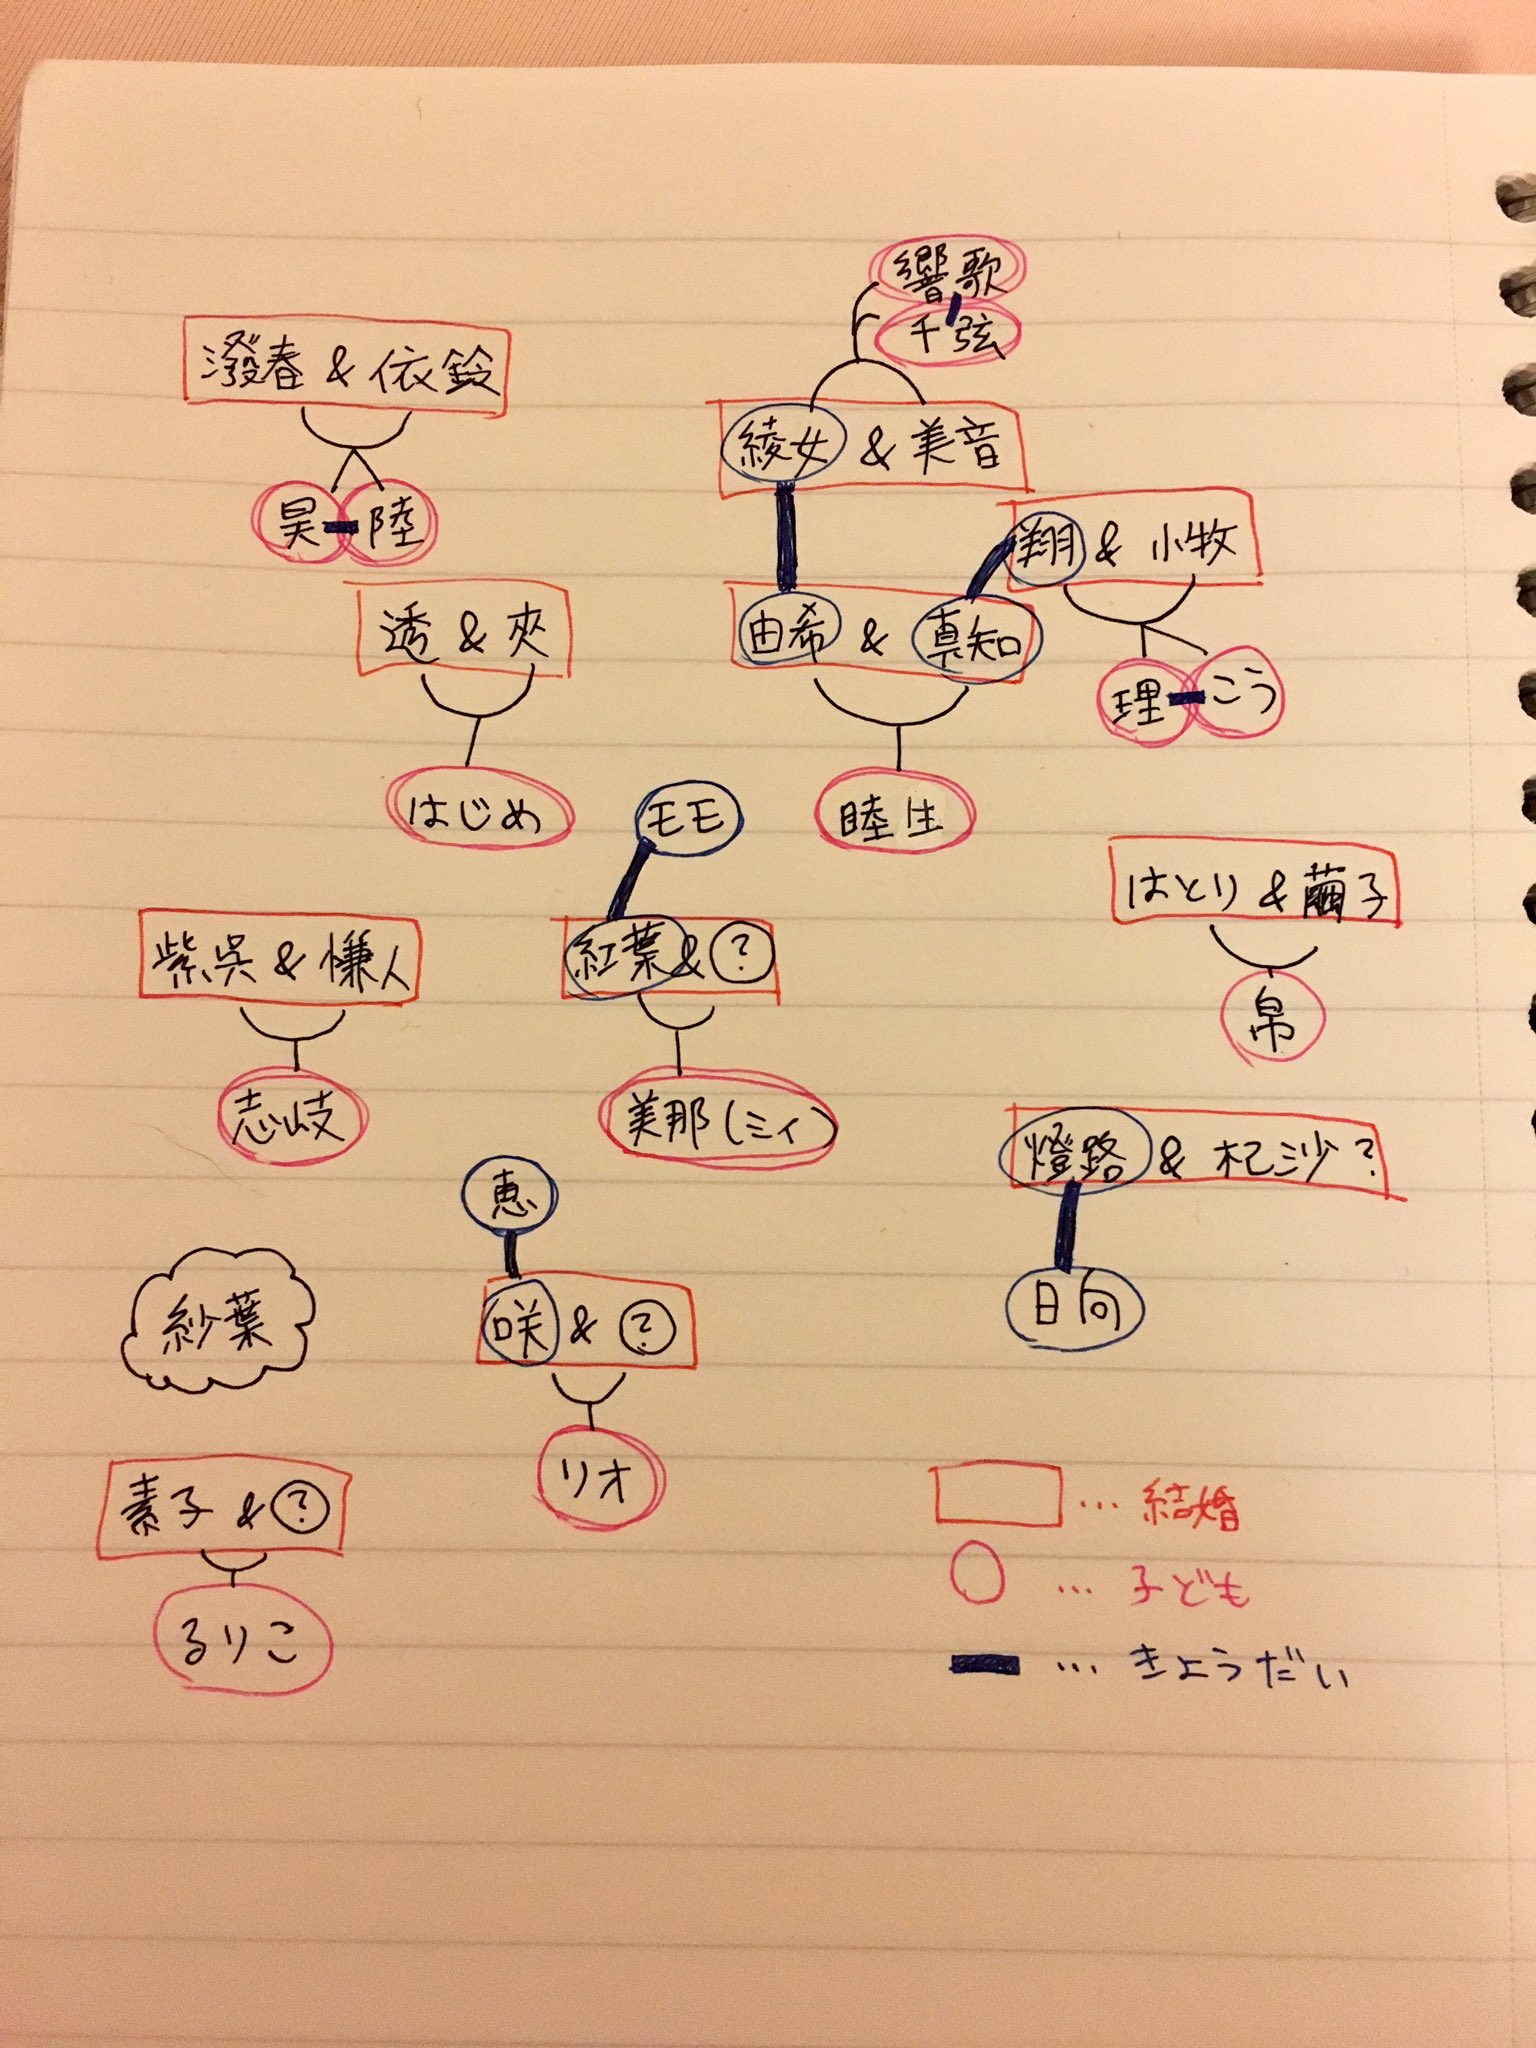 響歌
千弦
溌春 & 依鈴
綾女 & 美音
昊 陸
翔 & 小牧
透 & 夾
由希 & 真知
理 こう
はじめ
モモ
睦生
はとり & 繭子
紫呉 & 慊人
紅葉 & ?
帛
志岐
美那(ミィ)
燈路 & 杞沙?
恵
日向
紗葉
咲 & ?
リオ
素子 & ?
… 結婚
… 子ども
るりこ
… きょうだい